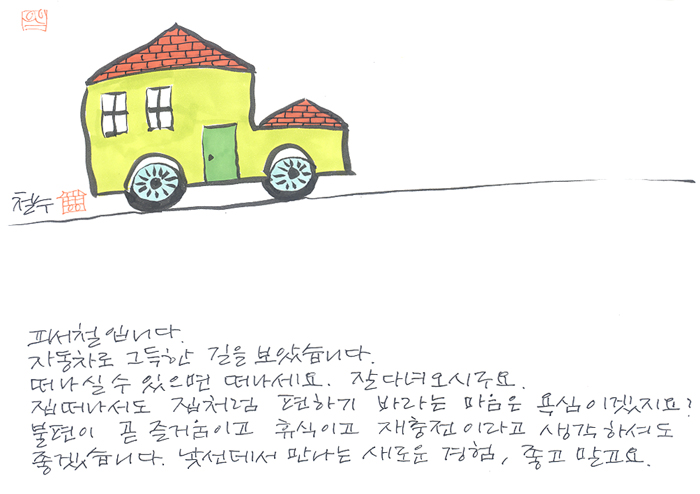 철수
피서철입니다.
자동차로 그득한 길을 보았습니다.
떠나실 수 있으면 떠나세요. 잘 다녀오시구요.
집 떠나서도 집처럼 편하기 바라는 마음은 욕심이겠지요?
불편이 곧 즐거움이고 휴식이고 재충전이라고 생각하셔도
좋겠습니다. 낯선데서 만나는 새로운 경험, 좋고 말고요.